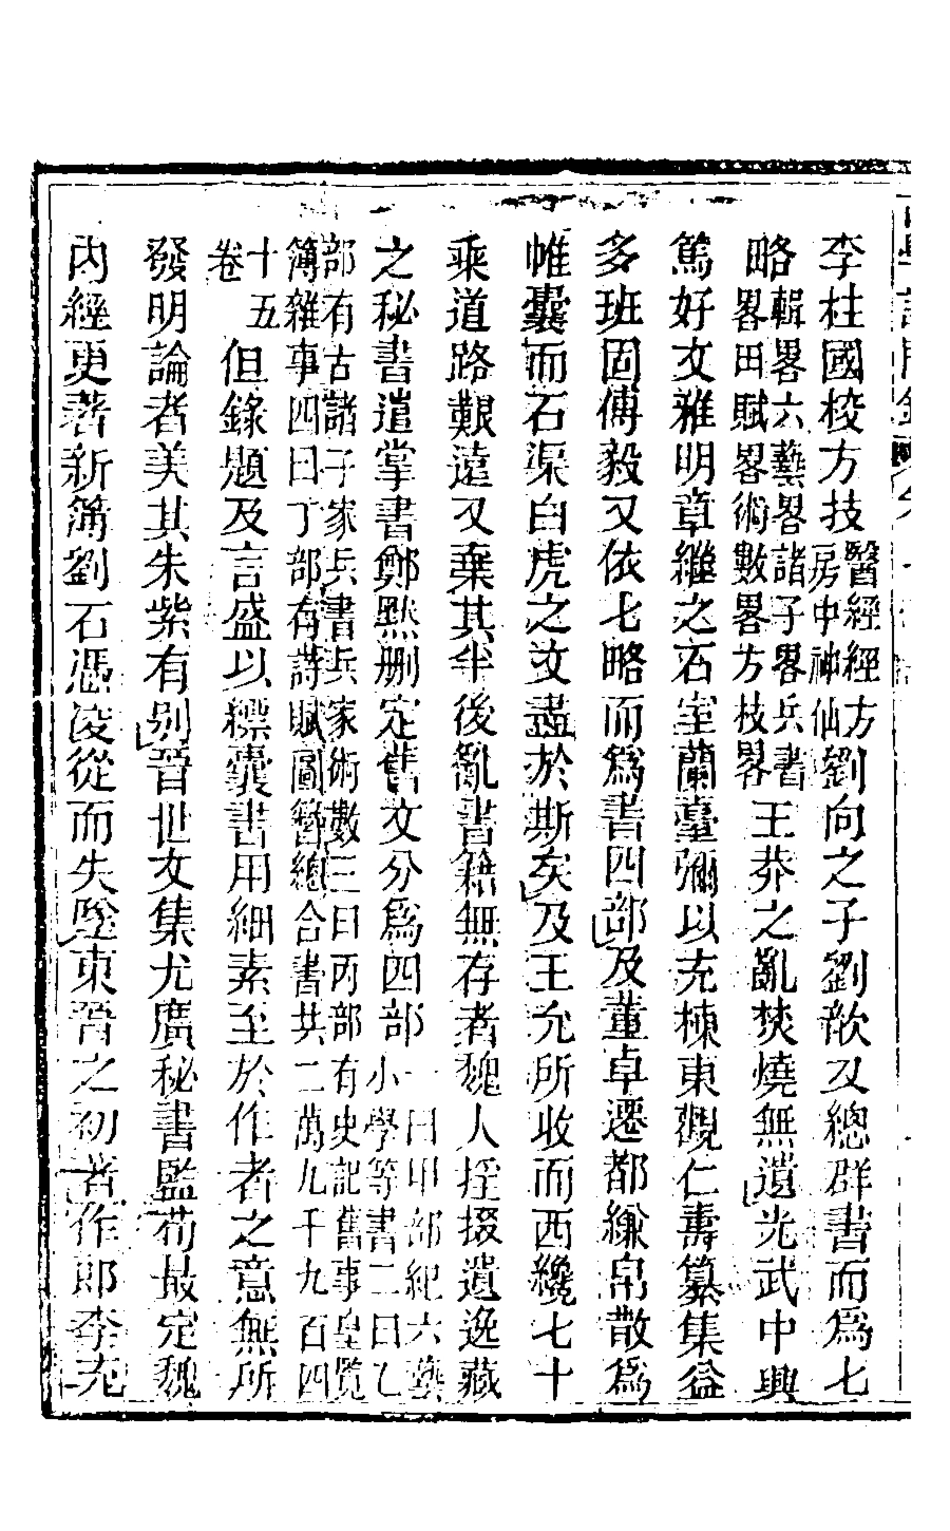 李柱國校方技醫經經方房中神仙劉向之子劉歆又總群書而為七
略輯畧六藝畧諸子畧兵書畧田賦畧術數畧方技畧王莽之亂焚燒無遺光武中興
篤好文雅明章繼之石室蘭臺彌以充棟東觀仁壽纂集益
多班固傅毅又依七略而為書四部及董卓遷都縑帛散為
帷囊而石渠白虎之文盡於斯矣及王允所收而西纔七十
乘道路艱遠又棄其半後亂書籍無存者魏人採掇遺逸藏
之秘書遣掌書鄭黙刪定舊文分為四部一曰甲部紀六藝小學等書二曰乙
部有古諸子家兵書兵家術數三曰丙部有史記舊事皇覽簿雜事四曰丁部有詩賦圖贊總合書共二萬九千九百四
十五卷但錄題及言盛以縹囊書用細素至於作者之意無所
發明論者美其朱紫有別晉世文集尤廣秘書監荀最定魏
內經更著新簿劉石憑凌從而失墜東晉之初著作郎李充